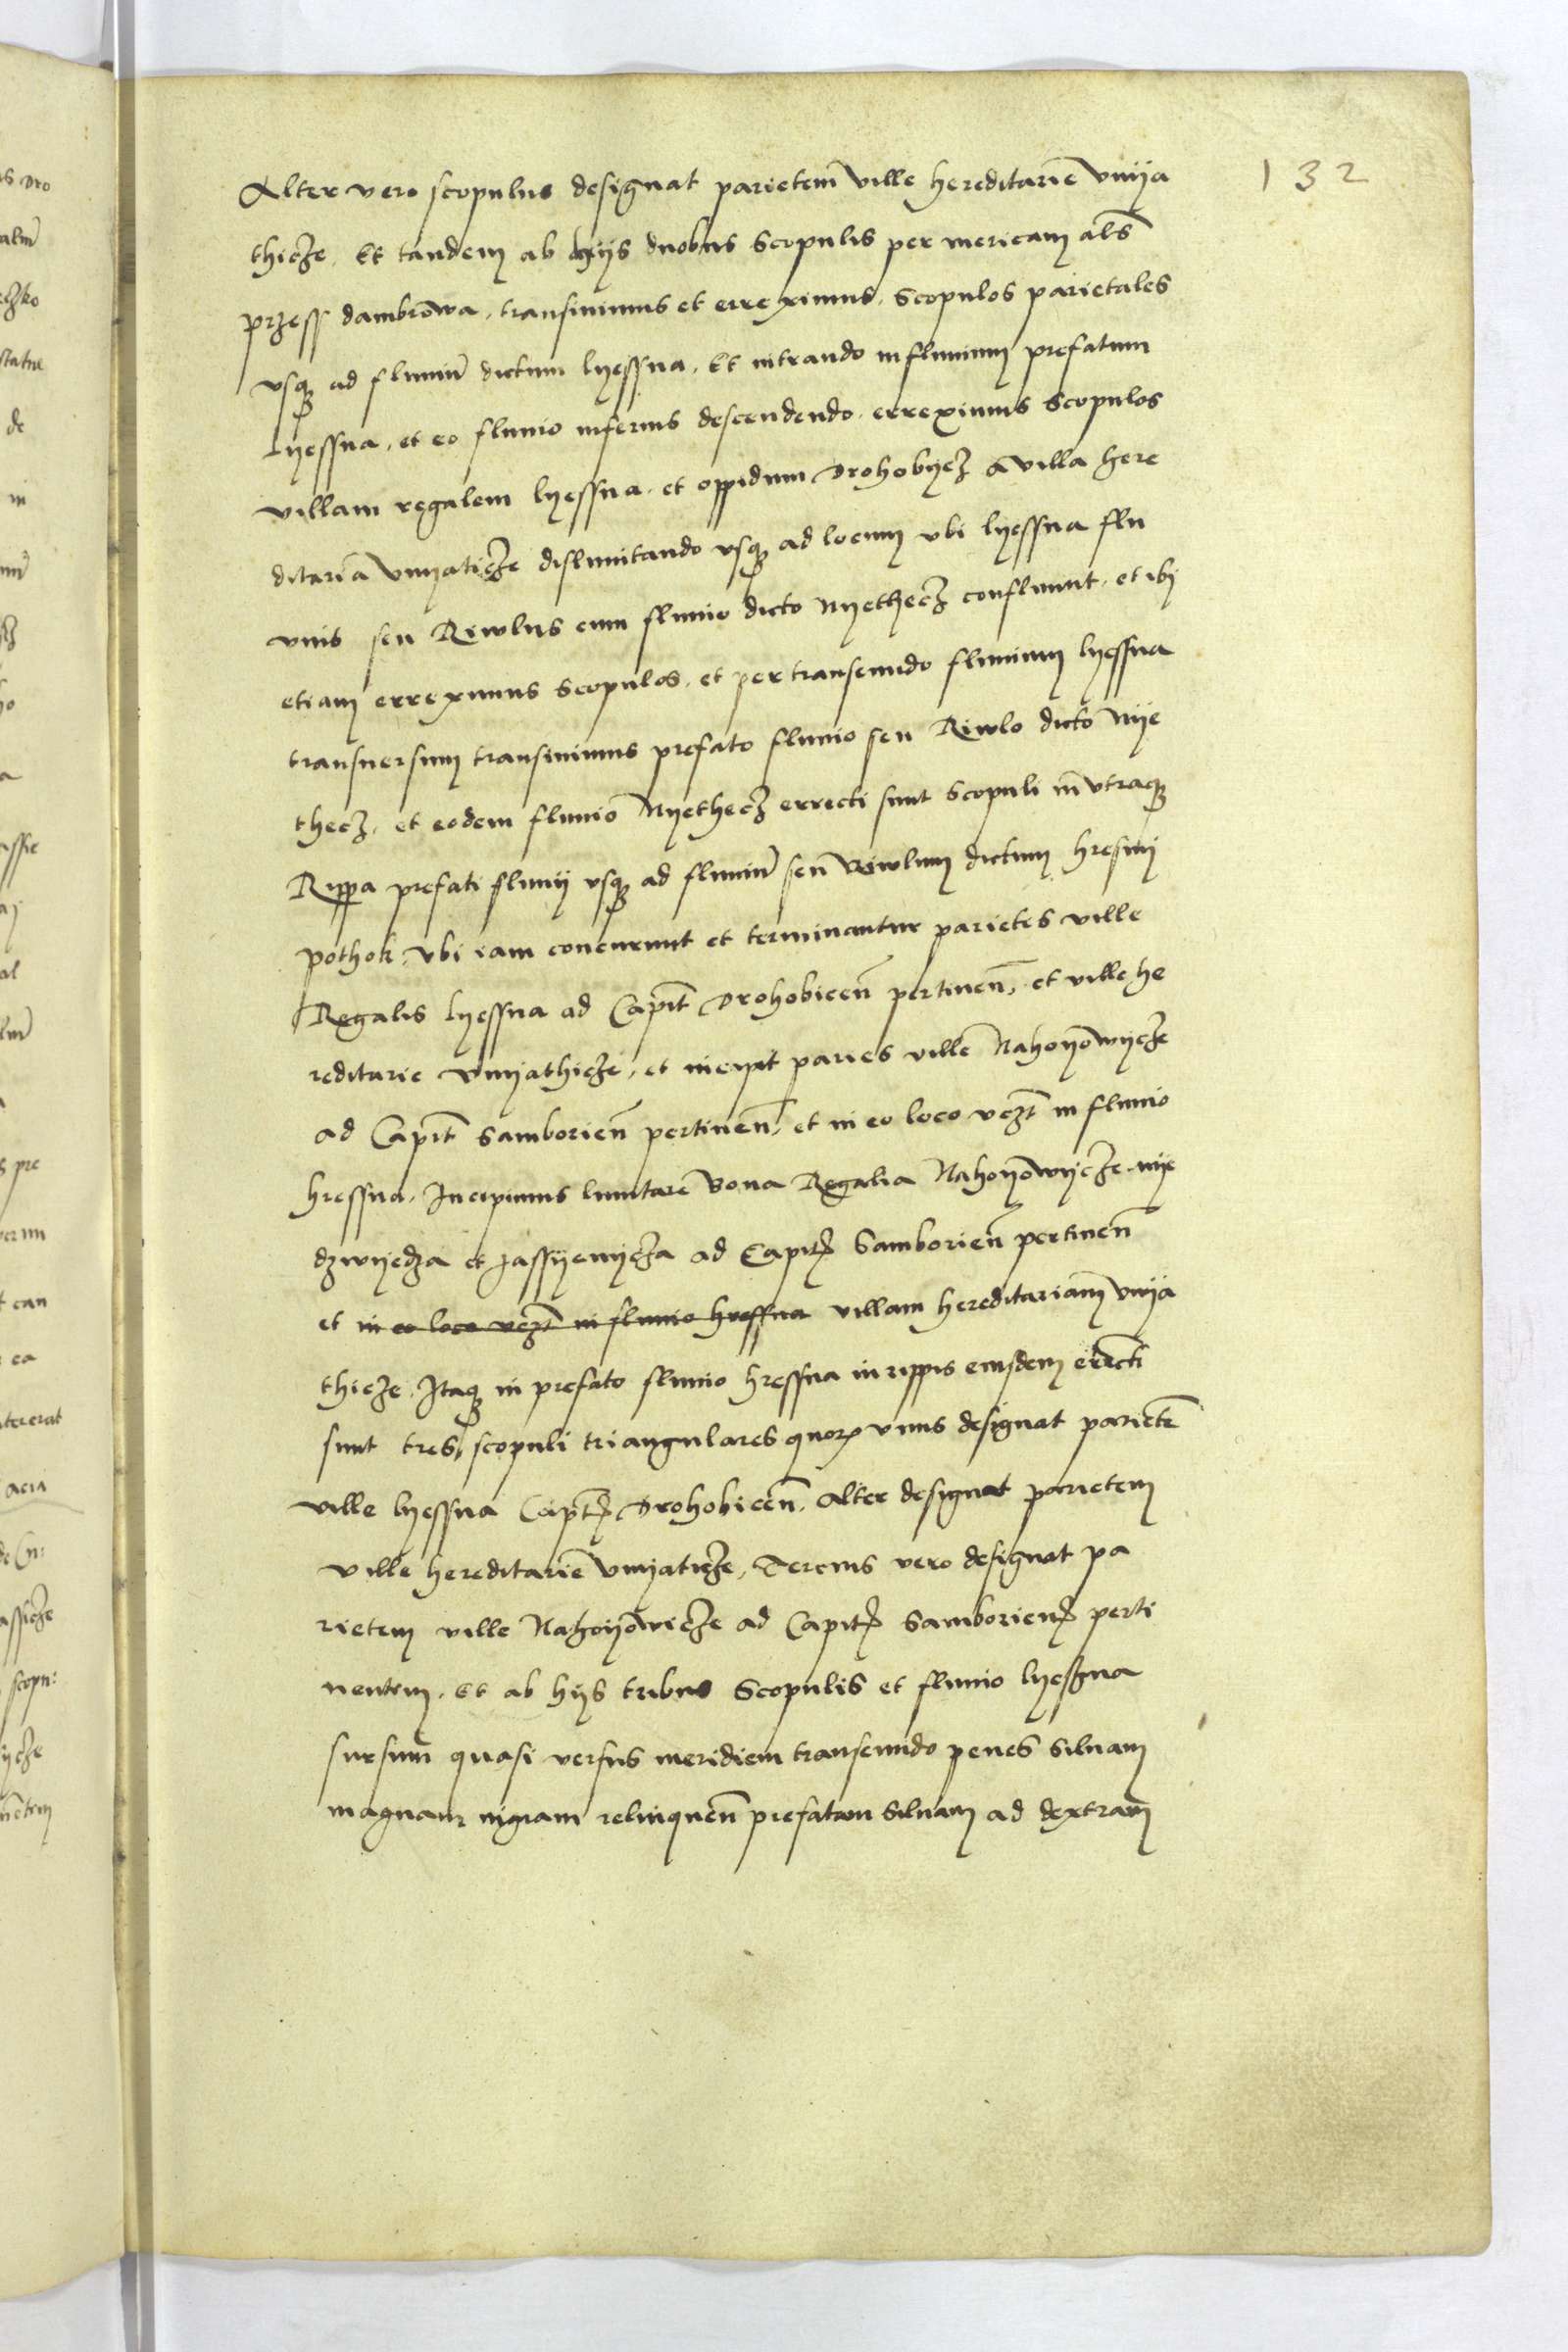 132
Alter vero scopulus designat parietem ville hereditarie Vnija
thicze. Et tandem ab hijs duobus scopulis per mericam als̄
przess dambrowa, transiuimus et erreximus, scopulos parietales
vsq̨ ad fluuiū dictum lyessna, Et intrando in fluuium prefatum
Lyessna, et eo fluuio inferius descendendo erreximus scopulos
villam regalem lyessna, et oppidum Drohobycz a villa here
ditaria Vnyaticze dislimitando vsq̨ ad locum vbi lyessna flu
vius seu Riwlus cum fluuio dicto Nyethecz confluunt, et ibj
etiam erreximus scopulos, et pertranseundo fluuium lyessna
transuersum transiuimus prefato fluuio seu Riwlo dicto Nije
thecz, et eodem fluuio Nyethecz errecti sunt scopuli in vtraq̨
Rippa prefati fluuij vsq̨ ad fluuiū seu Riwlum dictum hresnij
pothok, vbi iam concurrunt et terminantur parietes ville
Regalis lyessna ad Capit̄ Drohobicen̄ pertinen̄, et ville he
reditarie Vnyathicze, et incipit paries ville Nahoyowycze
ad Capit̄ Samborien̄ pertinen̄, et in eo loco vczt̄ in fluuio
hressna, Incipimus limitare Bona Regalia Nahoyowycze, nye
dzwyedza et Jassyenycza ad Capit̄ Samborien̄ pertinen̄
et in eo loco vczt̄ in fluuio hressna villam hereditariam Vnija
thicze, Itaq̨ in prefato fluuio hressna in rippis eiusdem errecti
sunt tres scopuli triangulares quoꝝ vnus designat parietē
ville lyessna Capit̄ Drohobicen̄, Alter designat parietem
ville hereditarie Vnyaticze, Tercius vero designat pa
rietem ville Nahoyowicze ad Capit̄ Samborien̄ perti
nentem, Et ab hijs tribus scopulis et fluuio lyessna
sursum quasi versus meridiem transeundo penes siluam
magnam nigram relinquen̄ prefatam siluam ad dextram